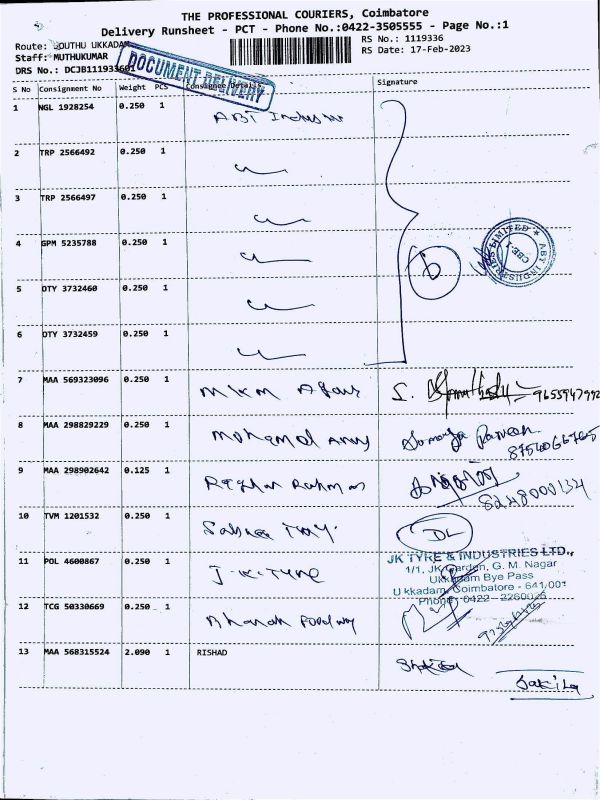 THE PROFESSIONAL COURIERS, Coimbatore
Delivery Runsheet - PCT - Phone No.:0422-3505555 - Page No.:1
Route: SOUTHU UKKADAM
RS No.: 1119336
Staff: MUTHUKUMAR
RS Date: 17-Feb-2023
DRS No.: DCJB111933601
DOCUMENT DELIVERY
S No Consignment No Weight PCS Consignee Details Signature
1 NGL 1928254 0.250 1 ABT
2 TRP 2566492 0.250 1
3 TRP 2566497 0.250 1
4 GPM 5235788 0.250 1 6
ABT INDUSTRIES LIMITED
CBE-1
5 DTY 3732460 0.250 1
6 DTY 3732459 0.250 1
7 MAA 569323096 0.250 1 MKM 9655947992
8 MAA 298829229 0.250 1 Mohamed
9 MAA 298902642 0.125 1 Rahman
8248000134
10 TVM 1201532 0.250 1 DL
11 POL 4600867 0.250 1 J.K. Tyre
JK TYRE & INDUSTRIES LTD.,
1/1, JK Garden, G. M. Nagar
Ukkadam Bye Pass
Ukkadam, Coimbatore - 641 001
Phone: 0422
12 TCG 50330669 0.250 1
13 MAA 568315524 2.090 1 RISHAD
Sakila